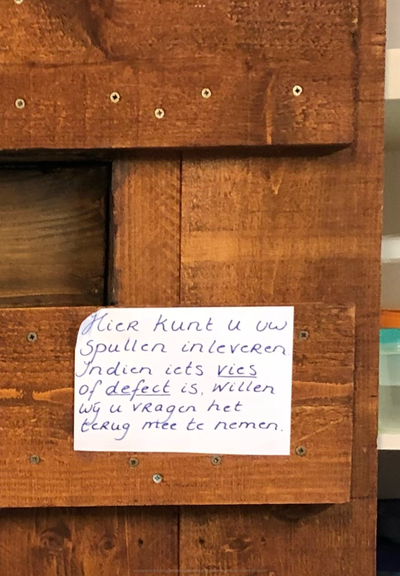 Hier kunt u uw
Spullen inleveren
Indien iets vies
of defect is, willen
wij u vragen het
terug mee te nemen.